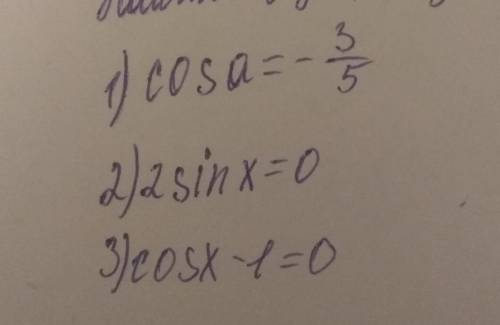 1) cos a = - 3/5
2) 2 sin x = 0
3) cos x - 1 = 0